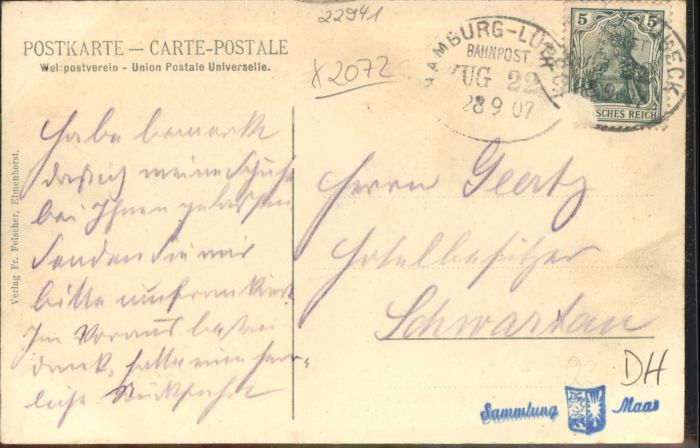 22941
POSTKARTE — CARTE-POSTALE
Weltpostverein - Union Postale Universelle.
X2072
HAMBURG-LÜBECK
BAHNPOST
ZUG 22
28 9 07
LÜBECK
5 5
DEUTSCHES REICH
Habe bemerkt
daß ich meine Schuhe
bei Ihnen gelassen
Senden Sie mir
bitte unfrankiert
Im Voraus besten
dank, hatte eine herr-
liche Rückfahrt
Herrn Geertz
Hotelbesitzer
Schwartau
Verlag Fr. Felscher, Elmenhorst.
DH
Sammlung Maas